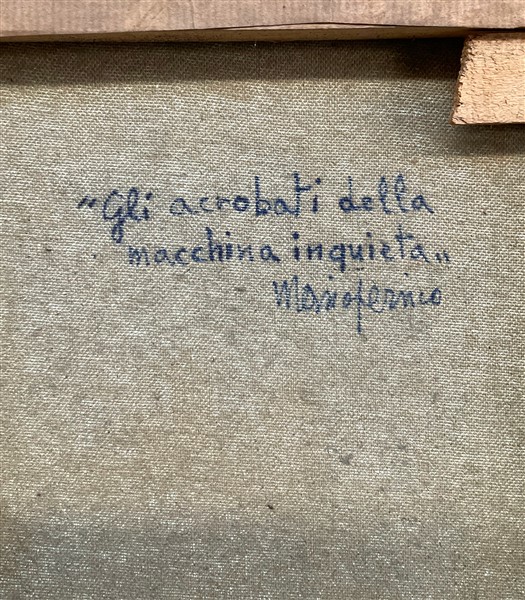 "Gli acrobati della
macchina inquieta„